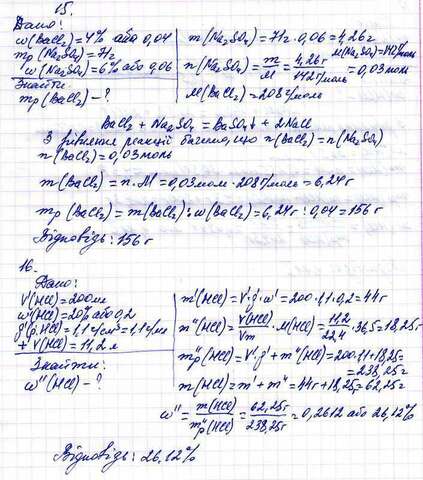 15.
Дано:
w(BaCl₂) = 4% або 0,04
mр(Na₂SO₄) = 71г
w(Na₂SO₄) = 6% або 0,06
Знайти:
mр(BaCl₂) - ?
m(Na₂SO₄) = 71г · 0,06 = 4,26г
M(Na₂SO₄) = 142г/моль
n(Na₂SO₄) = m/M = 4,26г/142г/моль = 0,03 моль
M(BaCl₂) = 208г/моль
BaCl₂ + Na₂SO₄ = BaSO₄↓ + 2NaCl
З рівняння реакції бачимо, що n(BaCl₂) = n(Na₂SO₄)
n(BaCl₂) = 0,03 моль
m(BaCl₂) = n · M = 0,03 моль · 208г/моль = 6,24г
mр(BaCl₂) = m(BaCl₂) : w(BaCl₂) = 6,24г : 0,04 = 156г
Відповідь: 156г
16.
Дано:
V'(HCl) = 200мл
w'(HCl) = 20% або 0,2
ρ'(р.HCl) = 1,1 г/см³ = 1,1 г/мл
+ V(HCl) = 11,2 л
Знайти:
w''(HCl) - ?
m'(HCl) = V' · ρ' · w' = 200 · 1,1 · 0,2 = 44г
m''(HCl) = V(HCl)/Vm · M(HCl) = 11,2/22,4 · 36,5 = 18,25г
m''р(HCl) = V' · ρ' + m''(HCl) = 200 · 1,1 + 18,25 =
= 238,25г
m(HCl) = m' + m'' = 44г + 18,25г = 62,25г
w'' = m(HCl)/m''р(HCl) = 62,25г/238,25г = 0,2612 або 26,12%
Відповідь: 26,12%